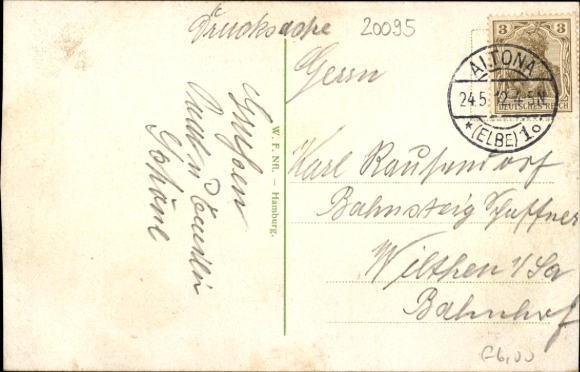 Drucksache
20095
3 3
DEUTSCHES REICH
ALTONA
24.5.12.4-5N
*(ELBE)1o
Herrn
Karl Raufendorf
Bahnsteig Schaffner
Wilthen i/Sa
Bahnhof
W. F. Nfl. — Hamburg.
Grüßen
6,00